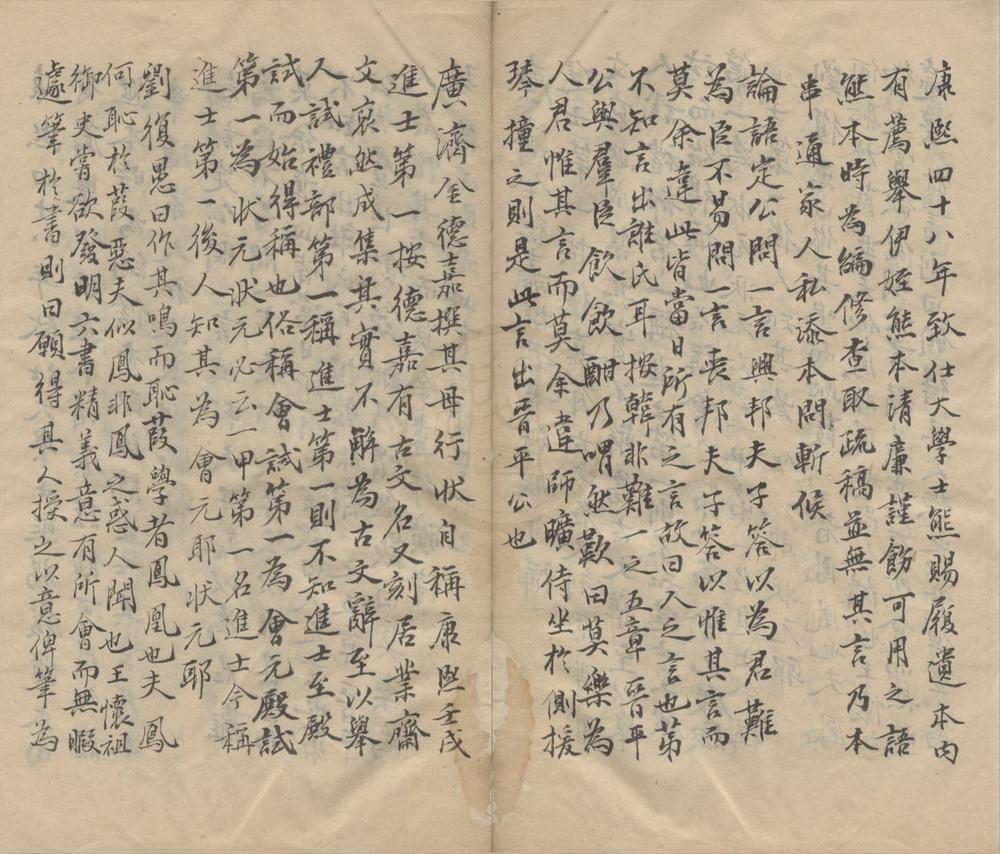 康熙四十八年致仕大學士熊賜履遺本內
有薦舉伊姪熊本清廉謹飭可用之語
熊本時為編修查取疏稿並無其言乃本
串通家人私添本問斬候
論語定公問一言興邦夫子答以為君難
為臣不易問一言喪邦夫子答以惟其言而
莫余違此皆當日所有之言故曰人之言也第
不知言出誰氏耳按韓非難一之五章晉平
公與羣臣飲飲酣乃喟然歎曰莫樂為
人君惟其言而莫余違師曠侍坐於側援
琴撞之則是此言出晉平公也
廣濟金德嘉撰其母行狀自稱康熙壬戌
進士第一按德嘉有古文名又刻居業齋
文裒然成集其實不解為古文辭至以舉
人試禮部第一稱進士第一則不知進士至殿
試而始得稱也俗稱會試第一為會元殿試
第一為狀元狀元必云一甲第一名進士今稱
進士第一後人知其為會元耶狀元耶
劉復愚曰作其鳴而恥葭學者鳳凰也夫鳳
何恥於葭惡夫似鳳非鳳之惑人聞也王懷祖
御史嘗欲發明六書精義意有所會而無暇
遽筆於書則曰願得其人授之以意俾筆為